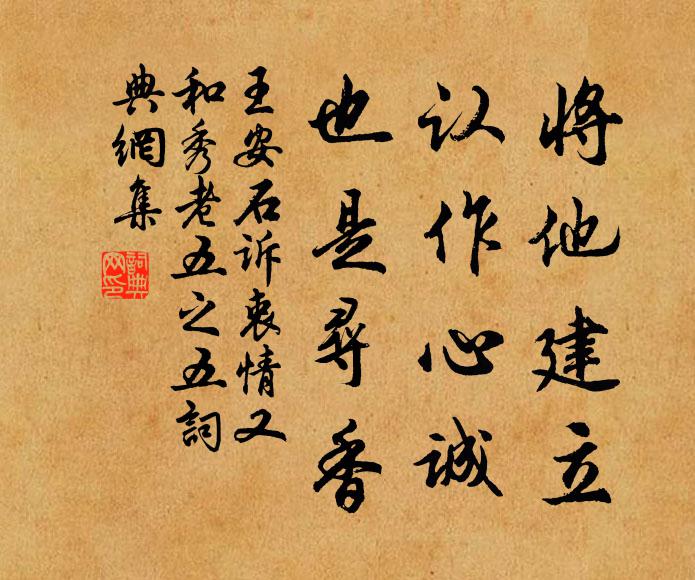 将他建立
认作心诚
也是寻香
王安石诉衷情又
和秀老五之五詞
典網集
詞典網印